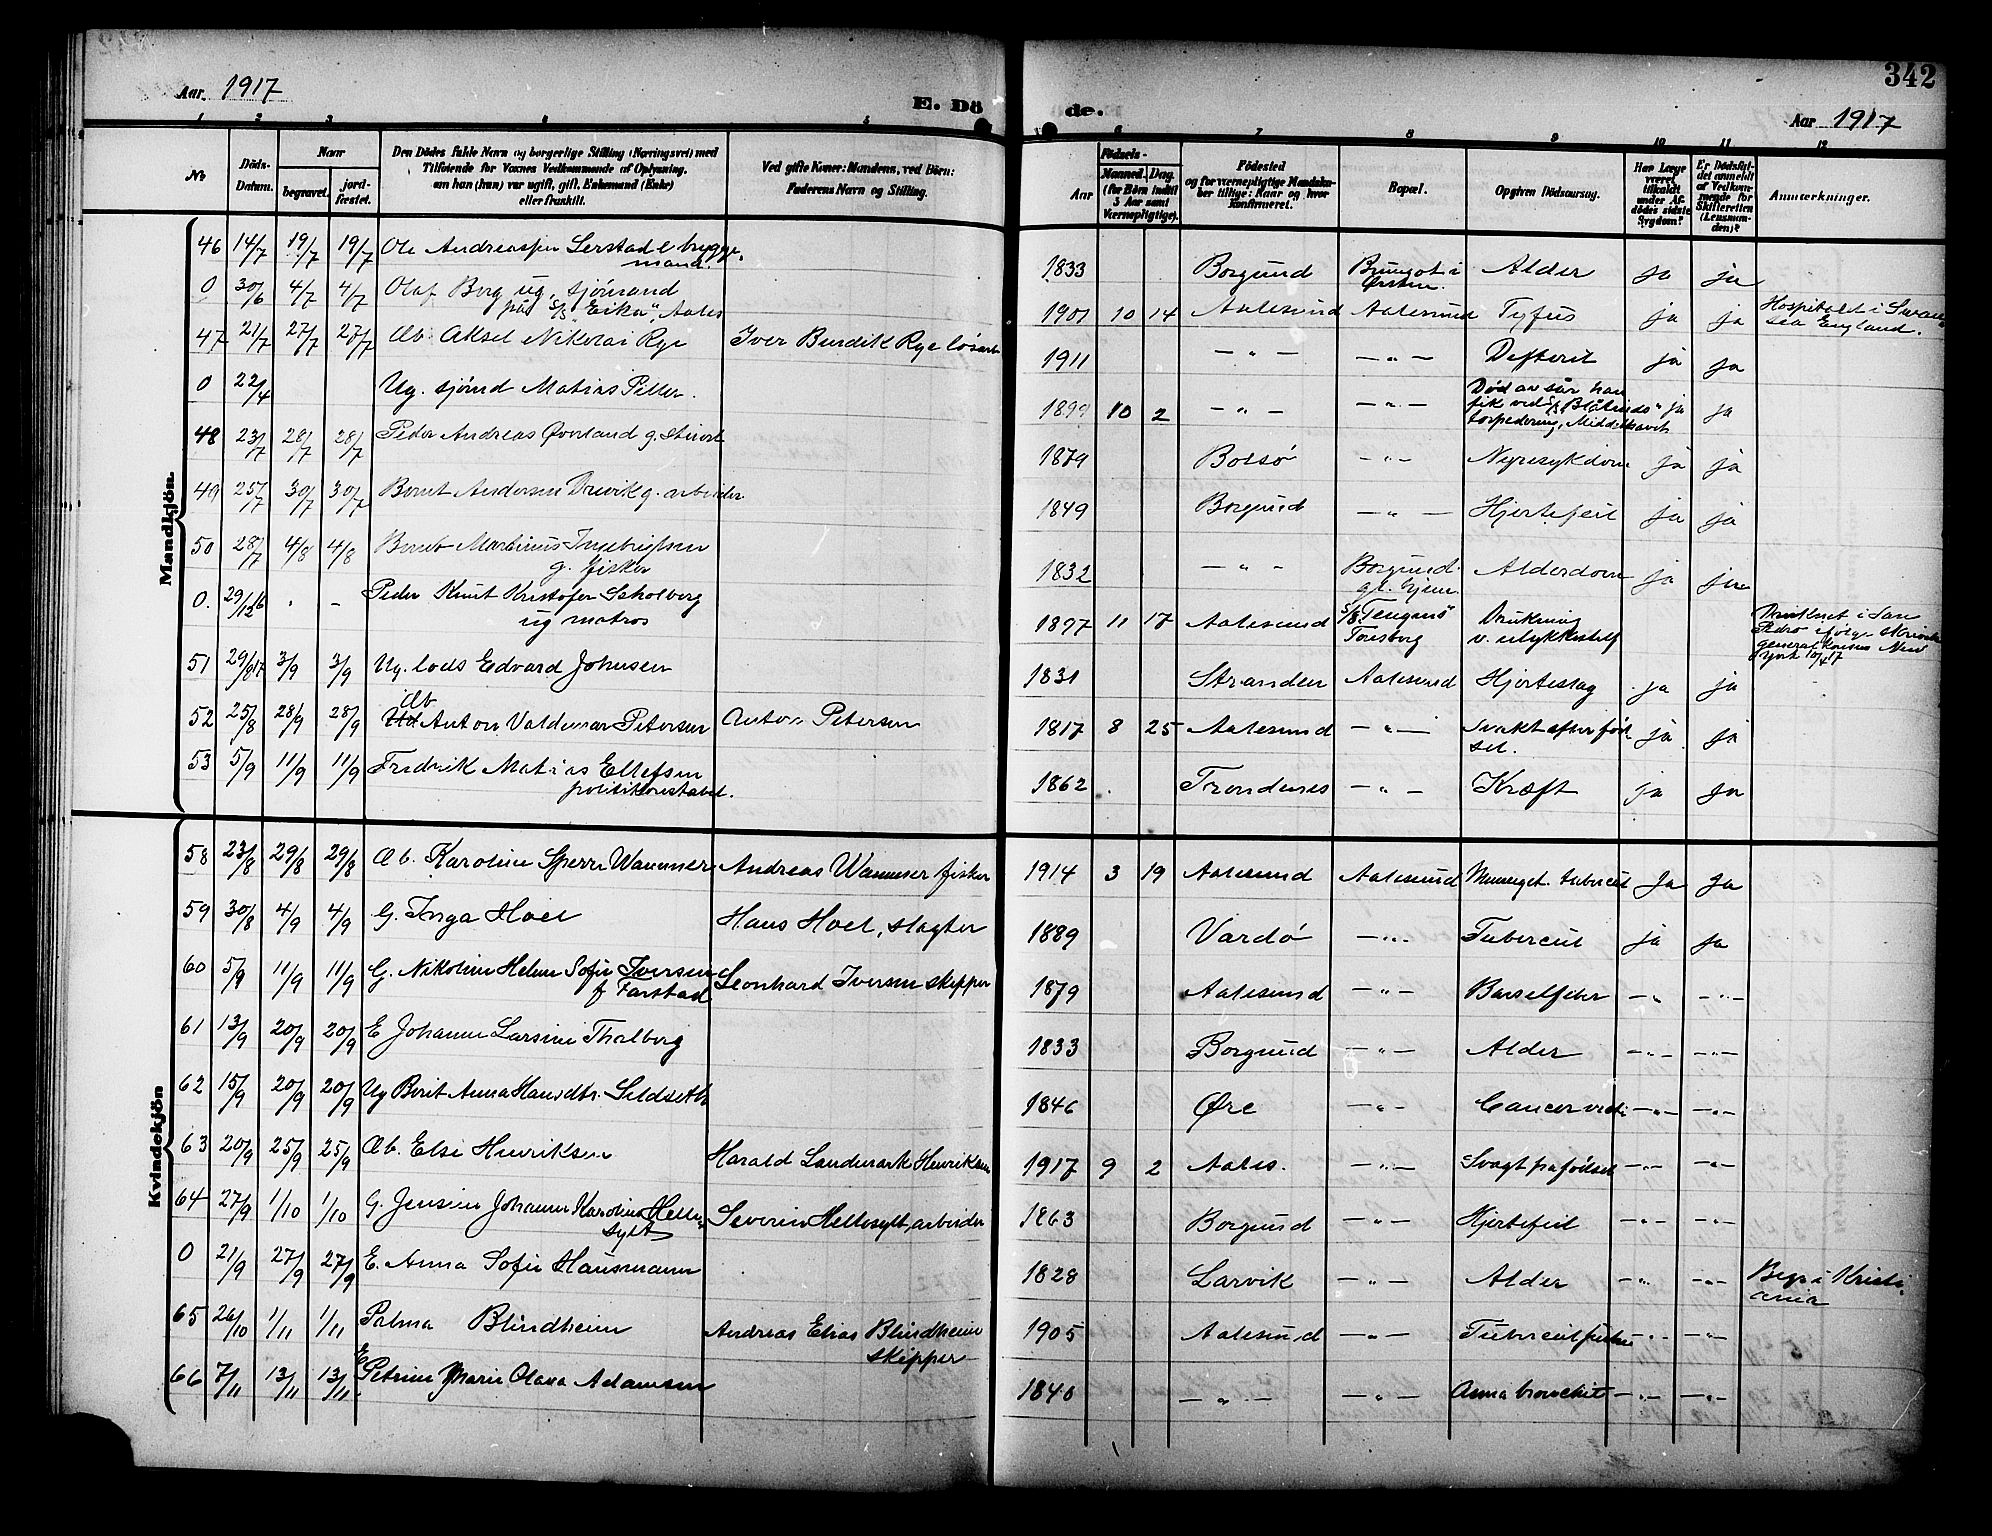 342
Aar 1917
E. Döde.
Aar 1917
1 2 3 4 5 6 7 8 9 10 11 12
No
Döds-Datum.
Naar
begravet.
jordfæstet.
Den Dödes fulde Navn og borgerlige Stilling (Næringsvei) med
Tilföiende for Voxnes Vedkommende af Oplysning,
om han (hun) var ugift, gift, Enkemand (Enke)
eller fraskilt.
Ved gifte Koner: Mandens, ved Börn:
Faderens Navn og Stilling.
Födsels-
Aar
Maaned. Dag.
(for Börn indtil
5 Aar samt
Værnepligtige).
Födested
og for værnepligtige Mandskaber tillige: Naar og hvor konfirmeret.
Bopæl.
Opgiven Dödsaarsag.
Har Læge været tilkaldt under Afdödes sidste Sygdom?
Er Dödsfaldet anmeldt af Vedkommende for Skifteretten (Lensmanden)?
Anmerkninger.
Mandkjön.
46 14/7 19/7 19/7 Ole Andreassen Lerstad e. bryggemand. 1833 Borgund Alder ja ja
0 30/6 4/7 4/7 Olaf Borg ug. sjömand
på S/S "Erika", Aales 1901 10 14 Aalesund Aalesund Tyfus ja ja Hospitalet i Swansea England.
47 21/7 27/7 27/7 Ab. Aksel Nikolai Rye Iver Burdik Rye løsarb 1911 — " — — " — Defterit ja ja
0 22/4 Ug. sjömd Matias Piller. 1899 10 2 — " — — " — Död av sår han
fik ved S/S "Blåtinds" ja ja
torpedering, Middelhavet
48 23/7 28/7 28/7 Peder Andreas Øverland g. 1879 Bolsø — " — Nyresykdom ja ja
49 25/7 30/7 30/7 Bernt Andersen g. arbeider 1849 Borgund — " — Hjertefeil ja ja
50 28/7 4/8 4/8 Bernt Martinus Ingebrigtsen
g. fisker 1832 — " — Borgund gl. hjem. Alderdom ja ja
0. 29/12 16 " — Peder Knut Kristofer Scholberg
ug matros 1897 11 17 Aalesund Tønsberg Drukning
v. ulykkestilf Druknet i San
Pedro ifølge skrivelse
generalkonsul New
York 10/4 17
51 29/8 17 3/9 3/9 Ug. lods Edvard Johnsen 1831 Stranden Aalesund Hjerteslag ja ja
52 25/8 28/9 28/9 Ab Anton Valdemar Petersen Anton Petersen 1817 8 25 Aalesund — " — Svakt efter fødsel. ja ja
53 5/9 11/9 11/9 Fredrik Matias Ellefsen
politikonstabel. 1862 Trondenes — " — Kræft ja ja
Kvindekjön
58 23/8 29/8 29/8 Ab. Karoline Sperre Wammer Andreas Wammer fisker 1914 3 19 Aalesund Aalesund tubercul ja ja
59 30/8 4/9 4/9 G. Inga Hoel Hans Hoel, slagter 1889 Vardø — " — Tubercul ja ja
60 5/9 11/9 11/9 G. Nikoline Helene Sofie Iversen
f Farstad Leonhard Iversen skipper 1879 Aalesund — " — Barselfeber — " — " —
61 13/9 20/9 20/9 E Johanne Larsine Thalberg 1833 Borgund — " — Alder — " — — " —
62 15/9 20/9 20/9 Ug Berit Anna Hansdtr. Seldseth 1846 Øre — " — Cancer — " — — " —
63 20/9 25/9 25/9 Ab. Else Henriksen Harald Landmark Henriksen 1917 9 2 Aales. — " — Svagt på fødsel — " — — " —
64 27/9 1/10 1/10 G. Jensine Johanne Karoline Hellesylt Severin Hellesylt, arbeider 1863 Borgund — " — Hjertefeil — " — — " —
0 21/9 27/9 27/9 E. Anna Sofie Hansmann 1828 Larvik — " — Alder — " — — " — Begr i Kristiania
65 26/10 1/11 1/11 Palma Blindheim Andreas Elias Blindheim
skipper 1905 Aalesund — " — — " — — " —
66 7/11 13/11 13/11 E Petrine Marie Olava Adamsen 1840 — " — — " — — " — — " —